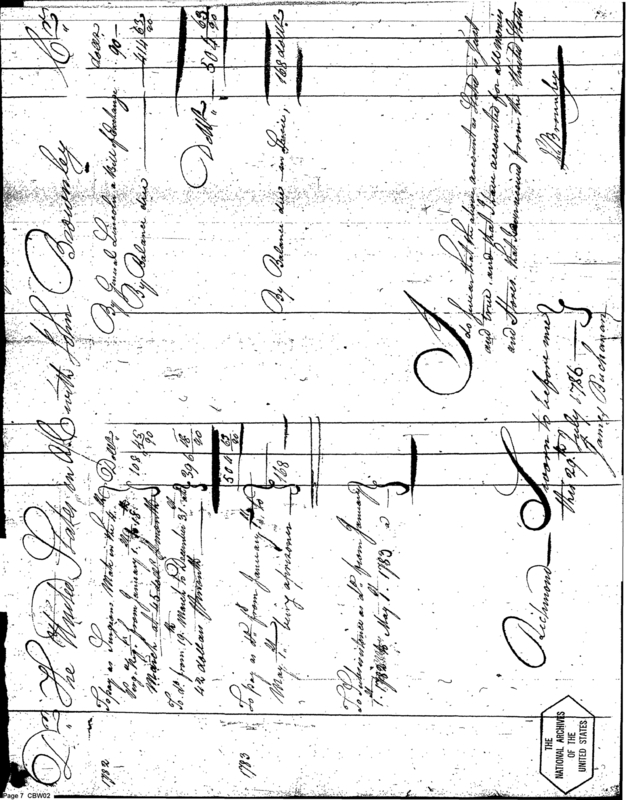 Dr. The United States in acct. with John Brownley Cr.
1782
To pay as Surgeons Mate in the 4th
Dollrs.
Reg. from January 1. to 18
March at 45 dolls. p month
108 45/90
To do. from 19th March to December 31. at
42 dollars p month
396 18/90
504 63/90
1783
To pay as do. from January to
May 1st being a prisoner
168
To Subsistance as do. from January
1. 1782 to May 1. 1783
By General Lincoln, a Bill of Exchange
dollrs
90 —
By Balance due
414 63/90
Dollrs. 504 63/90
By Balance due in Specie,
168 dollrs
I do swear that the above account as stated is just
and true, and that I have accounted for all monies
and Stores that I have received from the United States
J Brownley
Richmond Sworn to before me
this 29th July 1786
James Buchanan
THE
NATIONAL ARCHIVES
OF THE
UNITED STATES
Page 7 CBW02